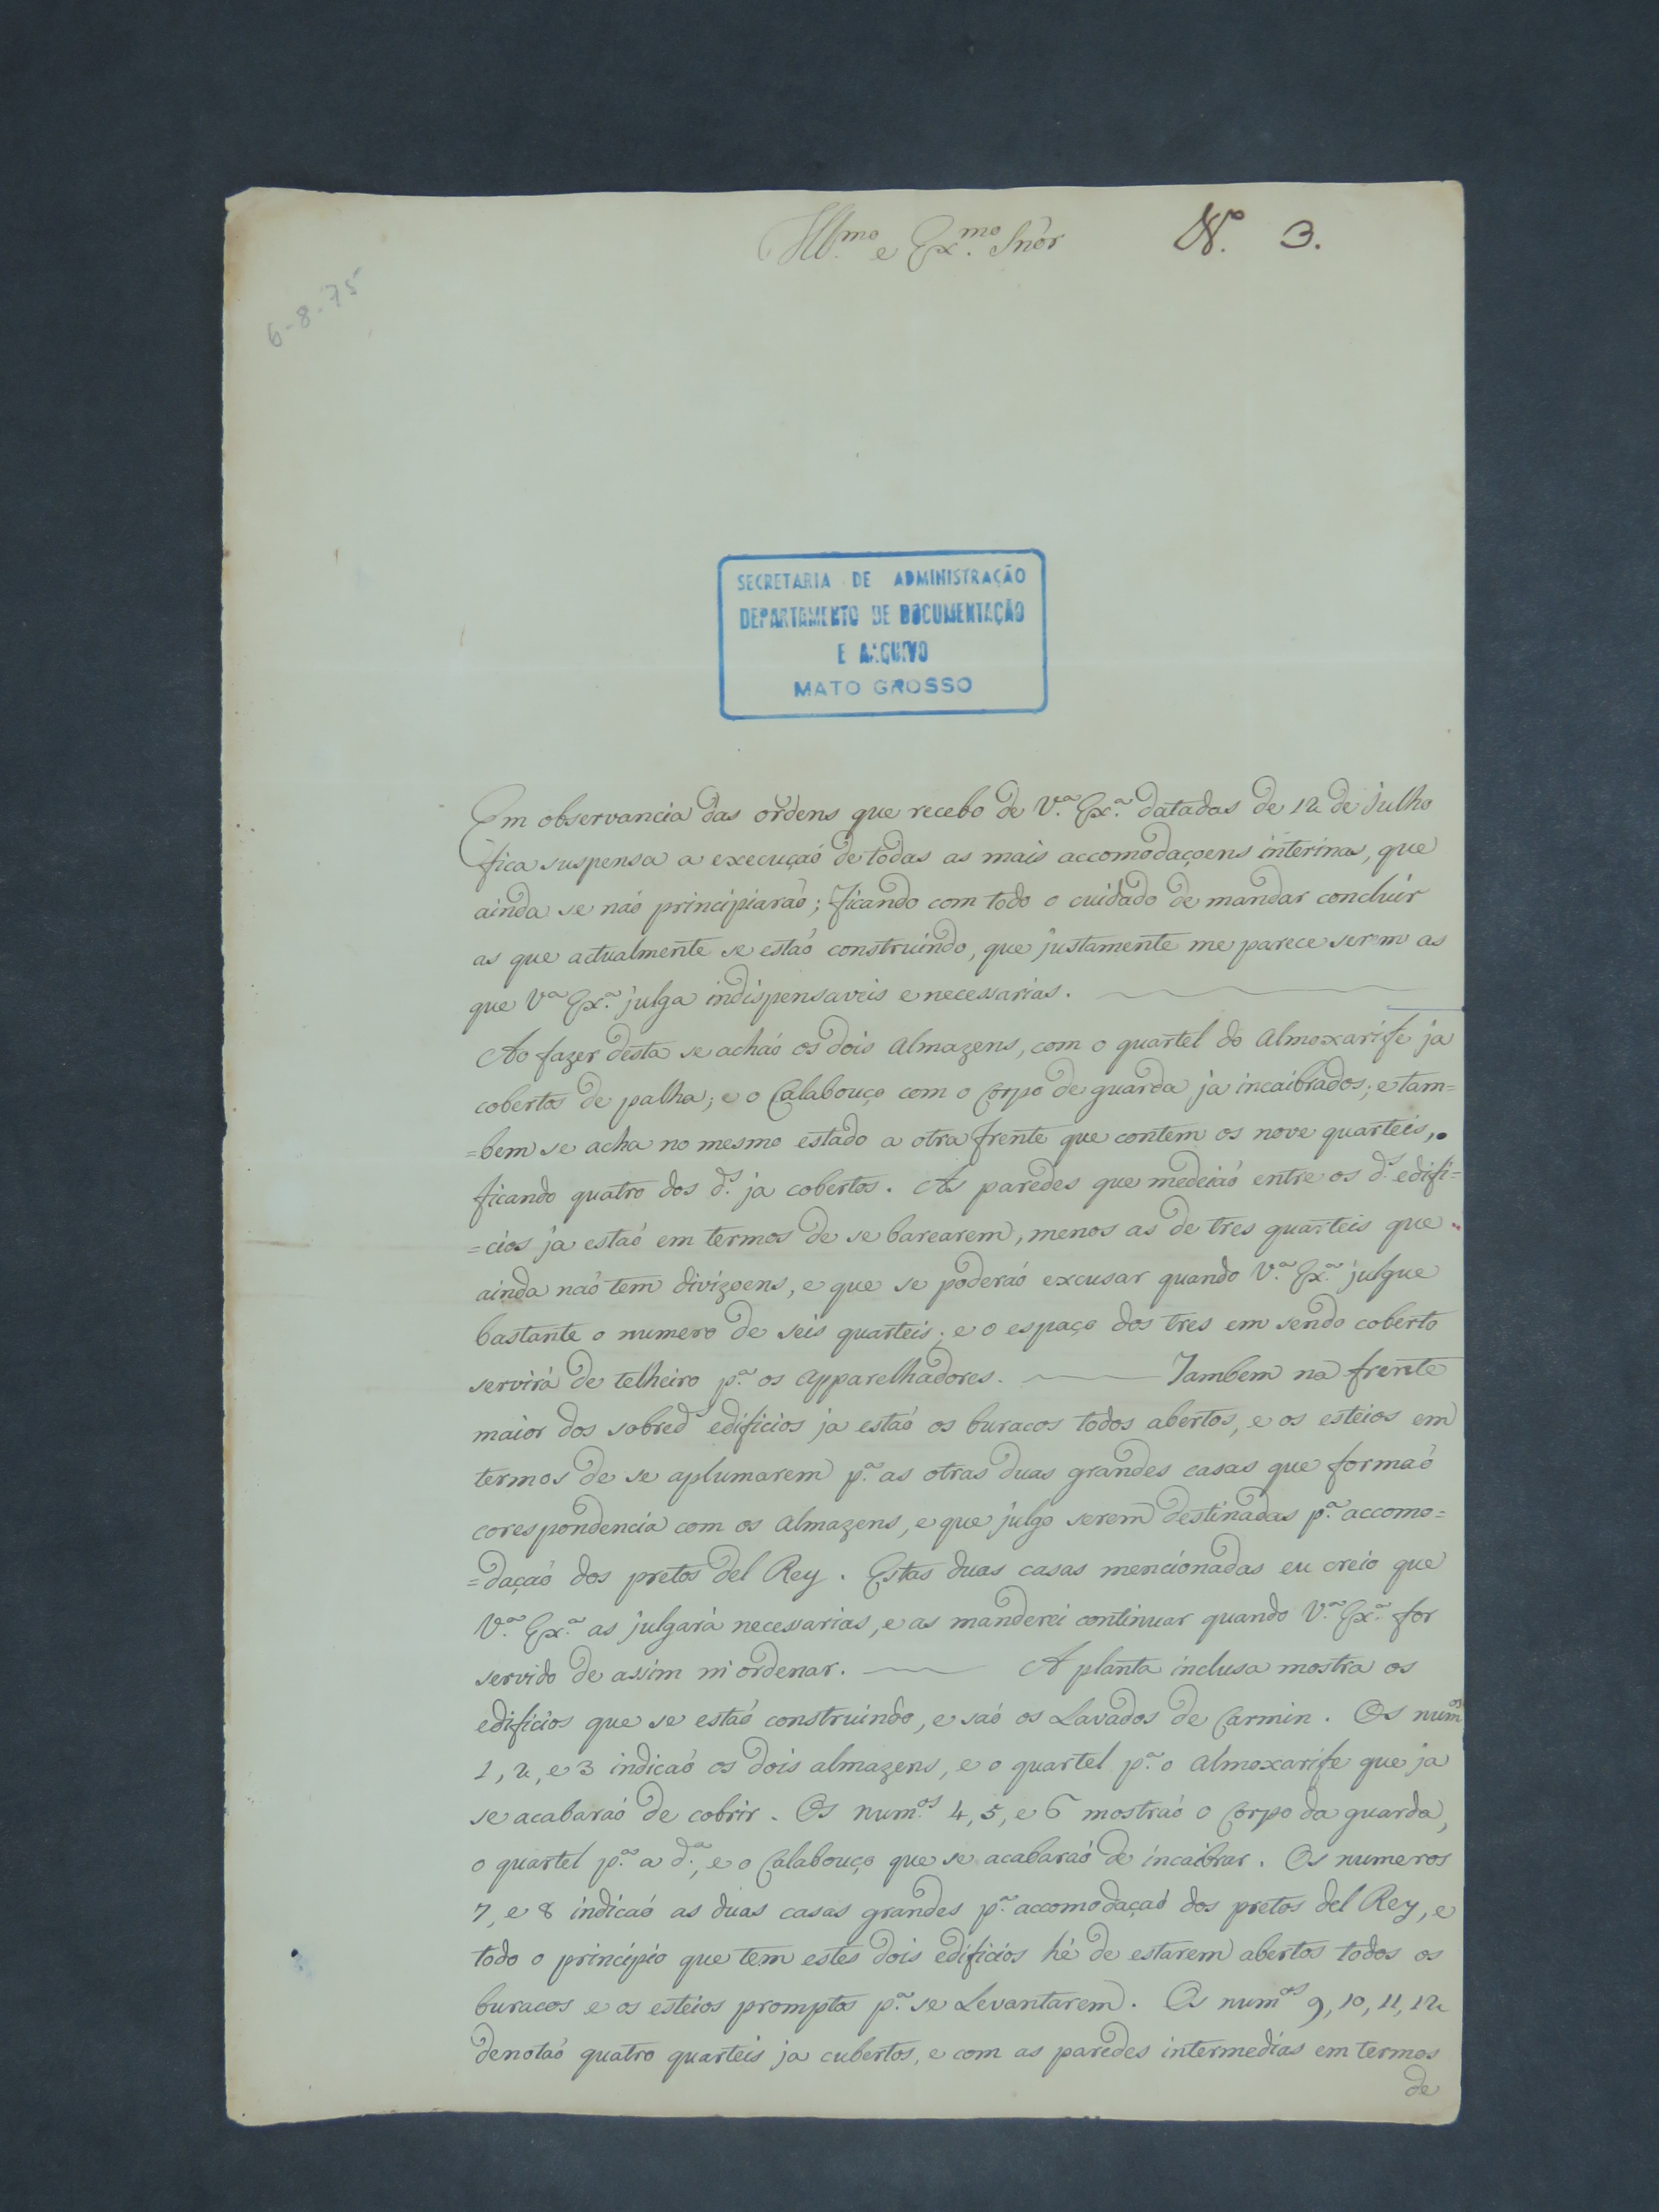 Ill.mo e Ex.mo Snor
N.o 3.
6-8-75
SECRETARIA DE ADMINISTRAÇÃO
DEPARTAMENTO DE DOCUMENTAÇÃO
E ARQUIVO
MATO GROSSO
Em observancia das ordens que recebo de V.a Ex.a datadas de 12 de Julho
fica suspensa a execuçaó de todas as mais accomodaçoens interinas, que
ainda se naó principiaraó; ficando com todo o cuidado de mandar concluir
as que actualmente se estaó construindo, que justamente me parece serem as
que V.a Ex.a julga indispensaveis e necessarias.
Ao fazer desta se achaó os dois Almazens, com o quartel do Almoxarife ja
cobertos de palha; e o Calabouço com o Corpo de guarda ja incaibrados; e tam=
=bem se acha no mesmo estado a otra frente que contem os nove quarteis,
ficando quatro dos d.s ja cobertos. As paredes que medeiaó entre os d.s edifi=
=cios ja estaó em termos de se barearem, menos as de tres quarteis que
ainda naó tem divizoens, e que se poderaó excusar quando V.a Ex.a julgue
bastante o numero de seis quarteis; e o espaço dos tres em sendo coberto
servirá de telheiro p.a os Apparelhadores. Tambem na frente
maior dos sobred.s edificios ja estaó os buracos todos abertos, e os esteios em
termos de se aplumarem p.a as otras duas grandes casas que formaó
corespondencia com os Almazens, e que julgo serem destinadas p.a accomo=
=daçaó dos pretos del Rey. Estas duas casas mencionadas eu creio que
V.a Ex.a as julgará necessarias, e as manderei continuar quando V.a Ex.a for
servido de assim m'ordenar. A planta inclusa mostra os
edificios que se estaó construindo, e saó os Lavados de Carmin. Os num.os
1, 2, e 3 indicaó os dois almazens, e o quartel p.a o Almoxarife que ja
se acabaraó de cobrir. Os num.os 4, 5, e 6 mostraó o Corpo da guarda,
o quartel p.a a d.a, e o Calabouço que se acabaraó de incaibrar. Os numeros
7, e 8 indicaó as duas casas grandes p.a accomodaçaó dos pretos del Rey, e
todo o principio que tem estes dois edificios hé de estarem abertos todos os
buracos e os esteios promptos p.a se Levantarem. Os num.os 9, 10, 11, 12
denotaó quatro quarteis ja cubertos, e com as paredes intermedias em termos
de